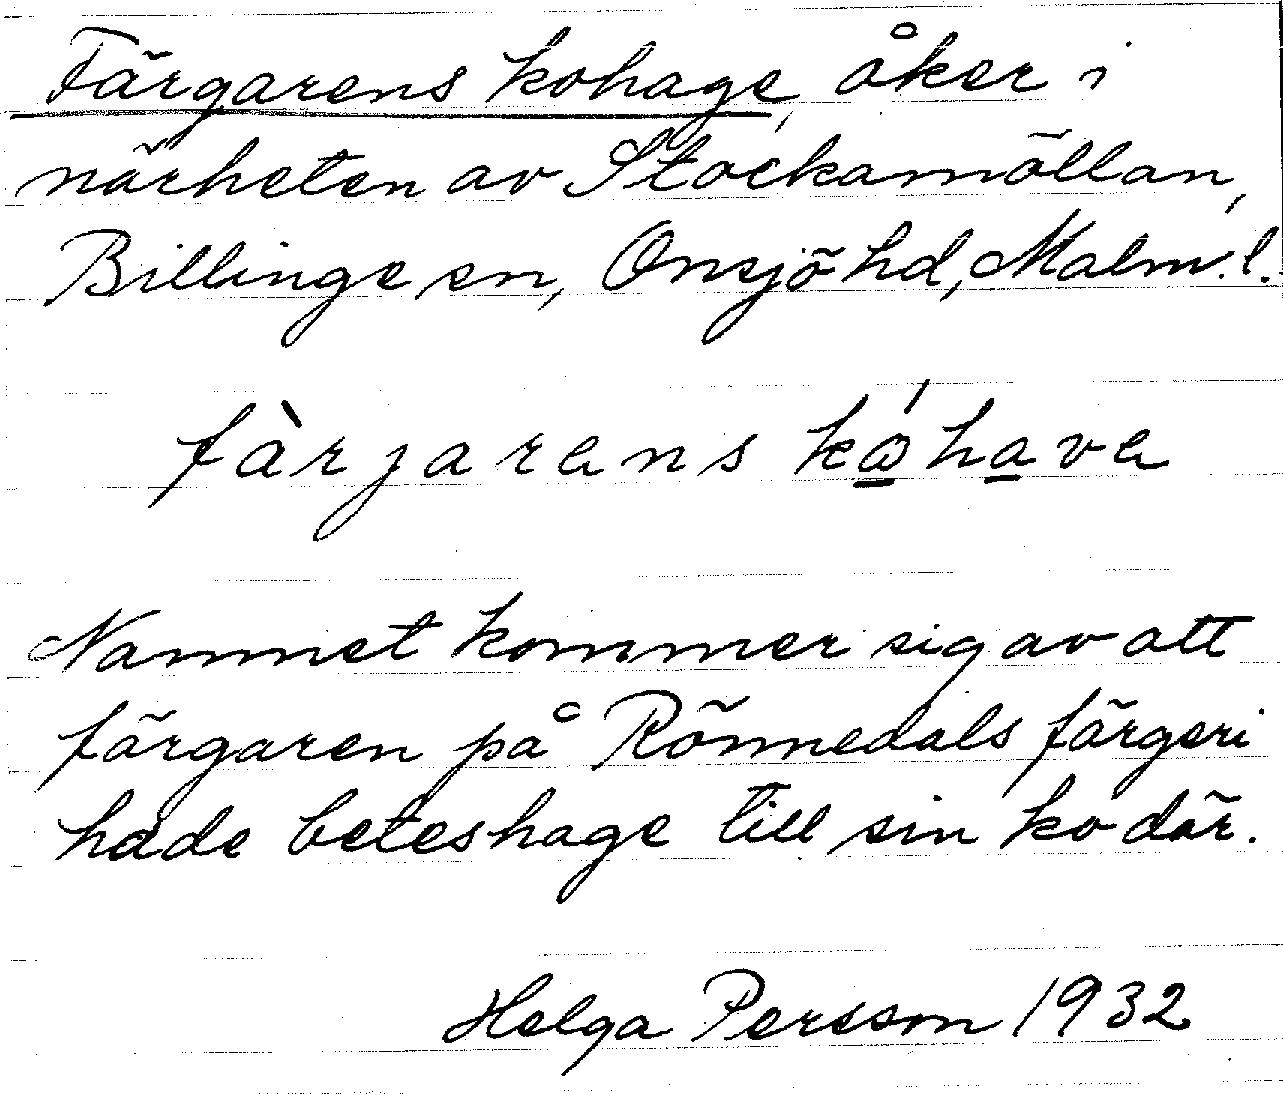 Färgarens kohage, åker i
närheten av Stockamöllan,
Billinge sn, Onsjö hd, Malm. l.
fàrjarens kåhava
Namnet kommer sig av att
färgaren på Rönnedals färgeri
hade beteshage till sin ko där.
Helga Persson 1932